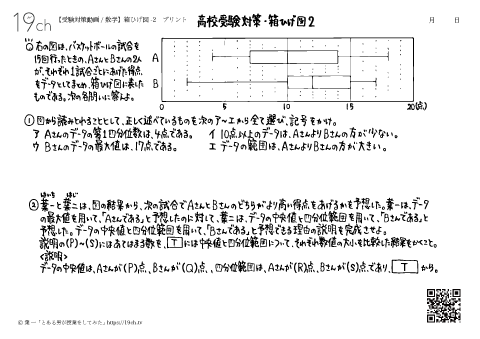 19ch 【受験対策動画 / 数学】箱ひげ図-2 プリント 高校受験対策・箱ひげ図2 月 日
Q 右の図は、バスケットボールの試合を
15回行ったときの、AさんとBさんの2人
が、それぞれ1試合ごとにあげた得点
をデータとしてまとめ、箱ひげ図に表した
ものである。次の各問いに答えよ。
A
B
0 5 10 15 20(点)
①図から読みとれることとして、正しく述べているものを次のア〜エから全て選び、記号をかけ。
ア Aさんのデータの第1四分位数は、4点である。 イ 10点以上のデータは、AさんよりBさんの方が少ない。
ウ Bさんのデータの最大値は、17点である。 エ データの範囲は、AさんよりBさんの方が大きい。
はいち はじ
②葉一と葉二は、図の結果から、次の試合でAさんとBさんのどちらがより高い得点をあげるかを予想した。葉一は、データ
の最大値を用いて、「Aさんである」と予想したのに対して、葉二は、データの中央値と四分位範囲を用いて、「Bさんである」と
予想した。データの中央値と四分位範囲を用いて、「Bさんである」と予想できる理由の説明を完成させよ。
説明の(P)〜(S)にはあてはまる数を、Tには中央値と四分位範囲について、それぞれ数値の大小を比較した結果をかくこと。
<説明>
データの中央値は、Aさんが(P)点、Bさんが(Q)点、四分位範囲は、Aさんが(R)点、Bさんが(S)点であり、Tから。
© 葉一「とある男が授業をしてみた」https://19ch.tv